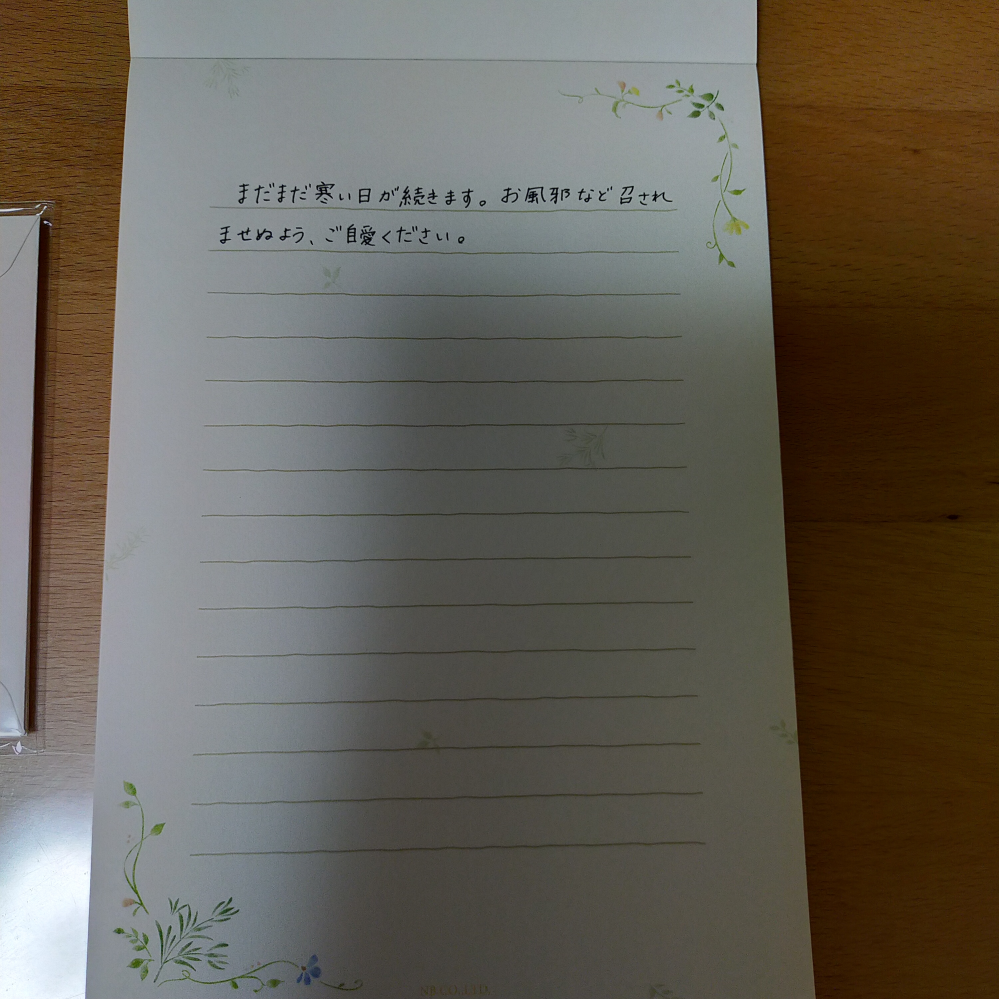 まだまだ寒い日が続きます。お風邪など召され
ませぬよう、ご自愛ください。